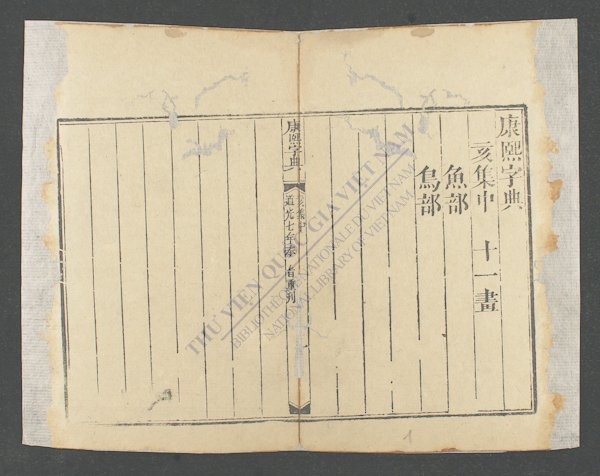 康熙字典
亥集中 十一畫
魚部
鳥部
康熙字典
亥集中
道光七年奉旨重刊
THƯ VIỆN QUỐC GIA VIỆT NAM
BIBLIOTHÈQUE NATIONALE DU VIETNAM
NATIONAL LIBRARY OF VIETNAM
1